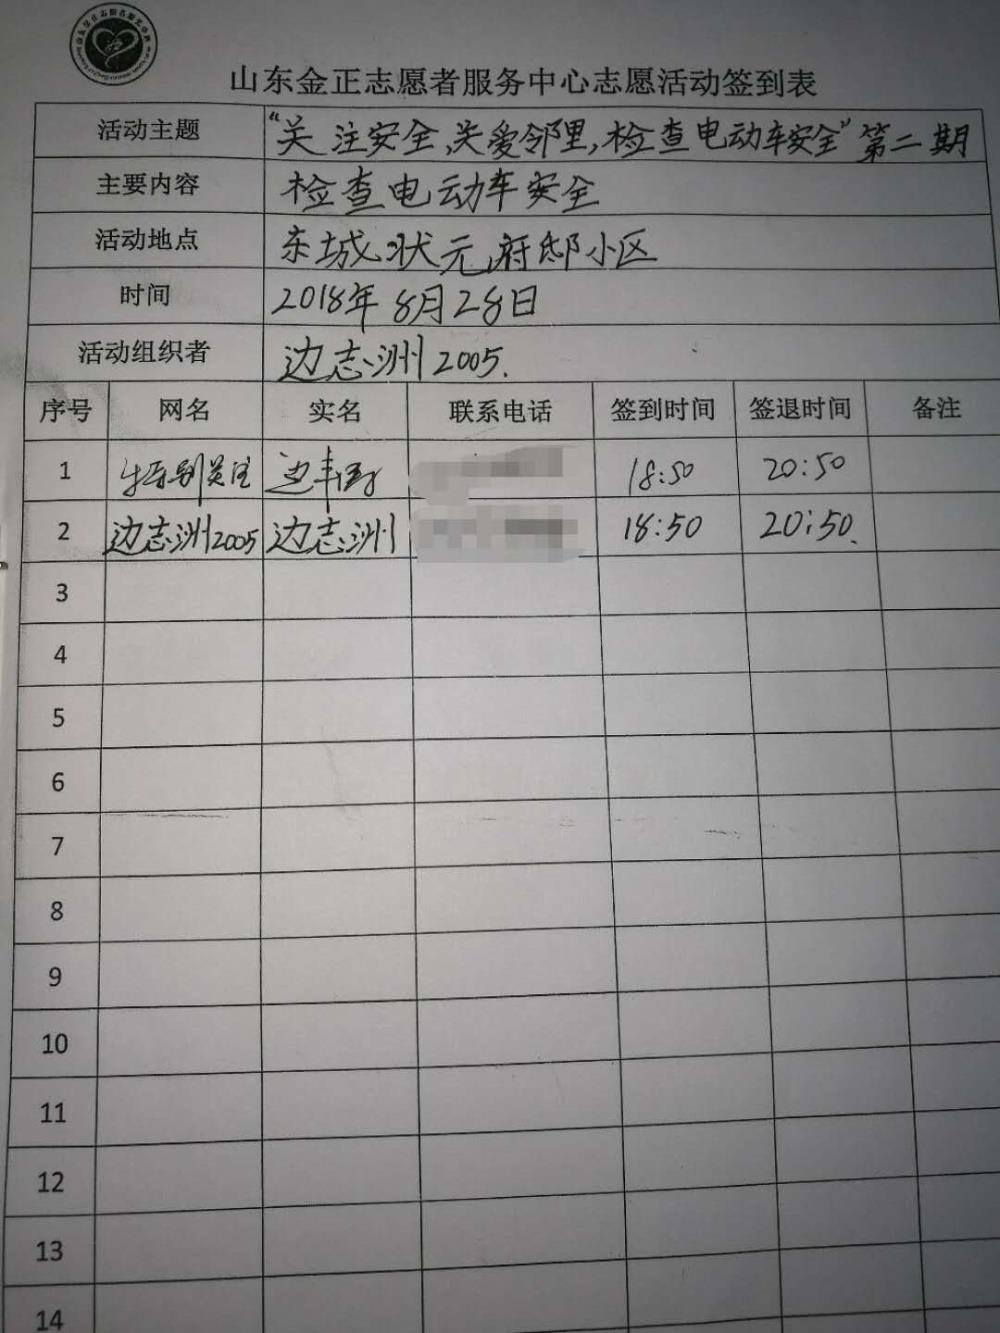 山东金正志愿者服务中心志愿活动签到表
活动主题 “关注安全、关爱邻里,检查电动车安全”第二期
主要内容 检查电动车安全
活动地点 东城状元府邸小区
时间 2018年8月28日
活动组织者 边志洲2005.
序号 网名 实名 联系电话 签到时间 签退时间 备注
1 特别关注 边 18:50 20:50
2 边志洲2005 边志洲 18:50 20:50.
3
4
5
6
7
8
9
10
11
12
13
14